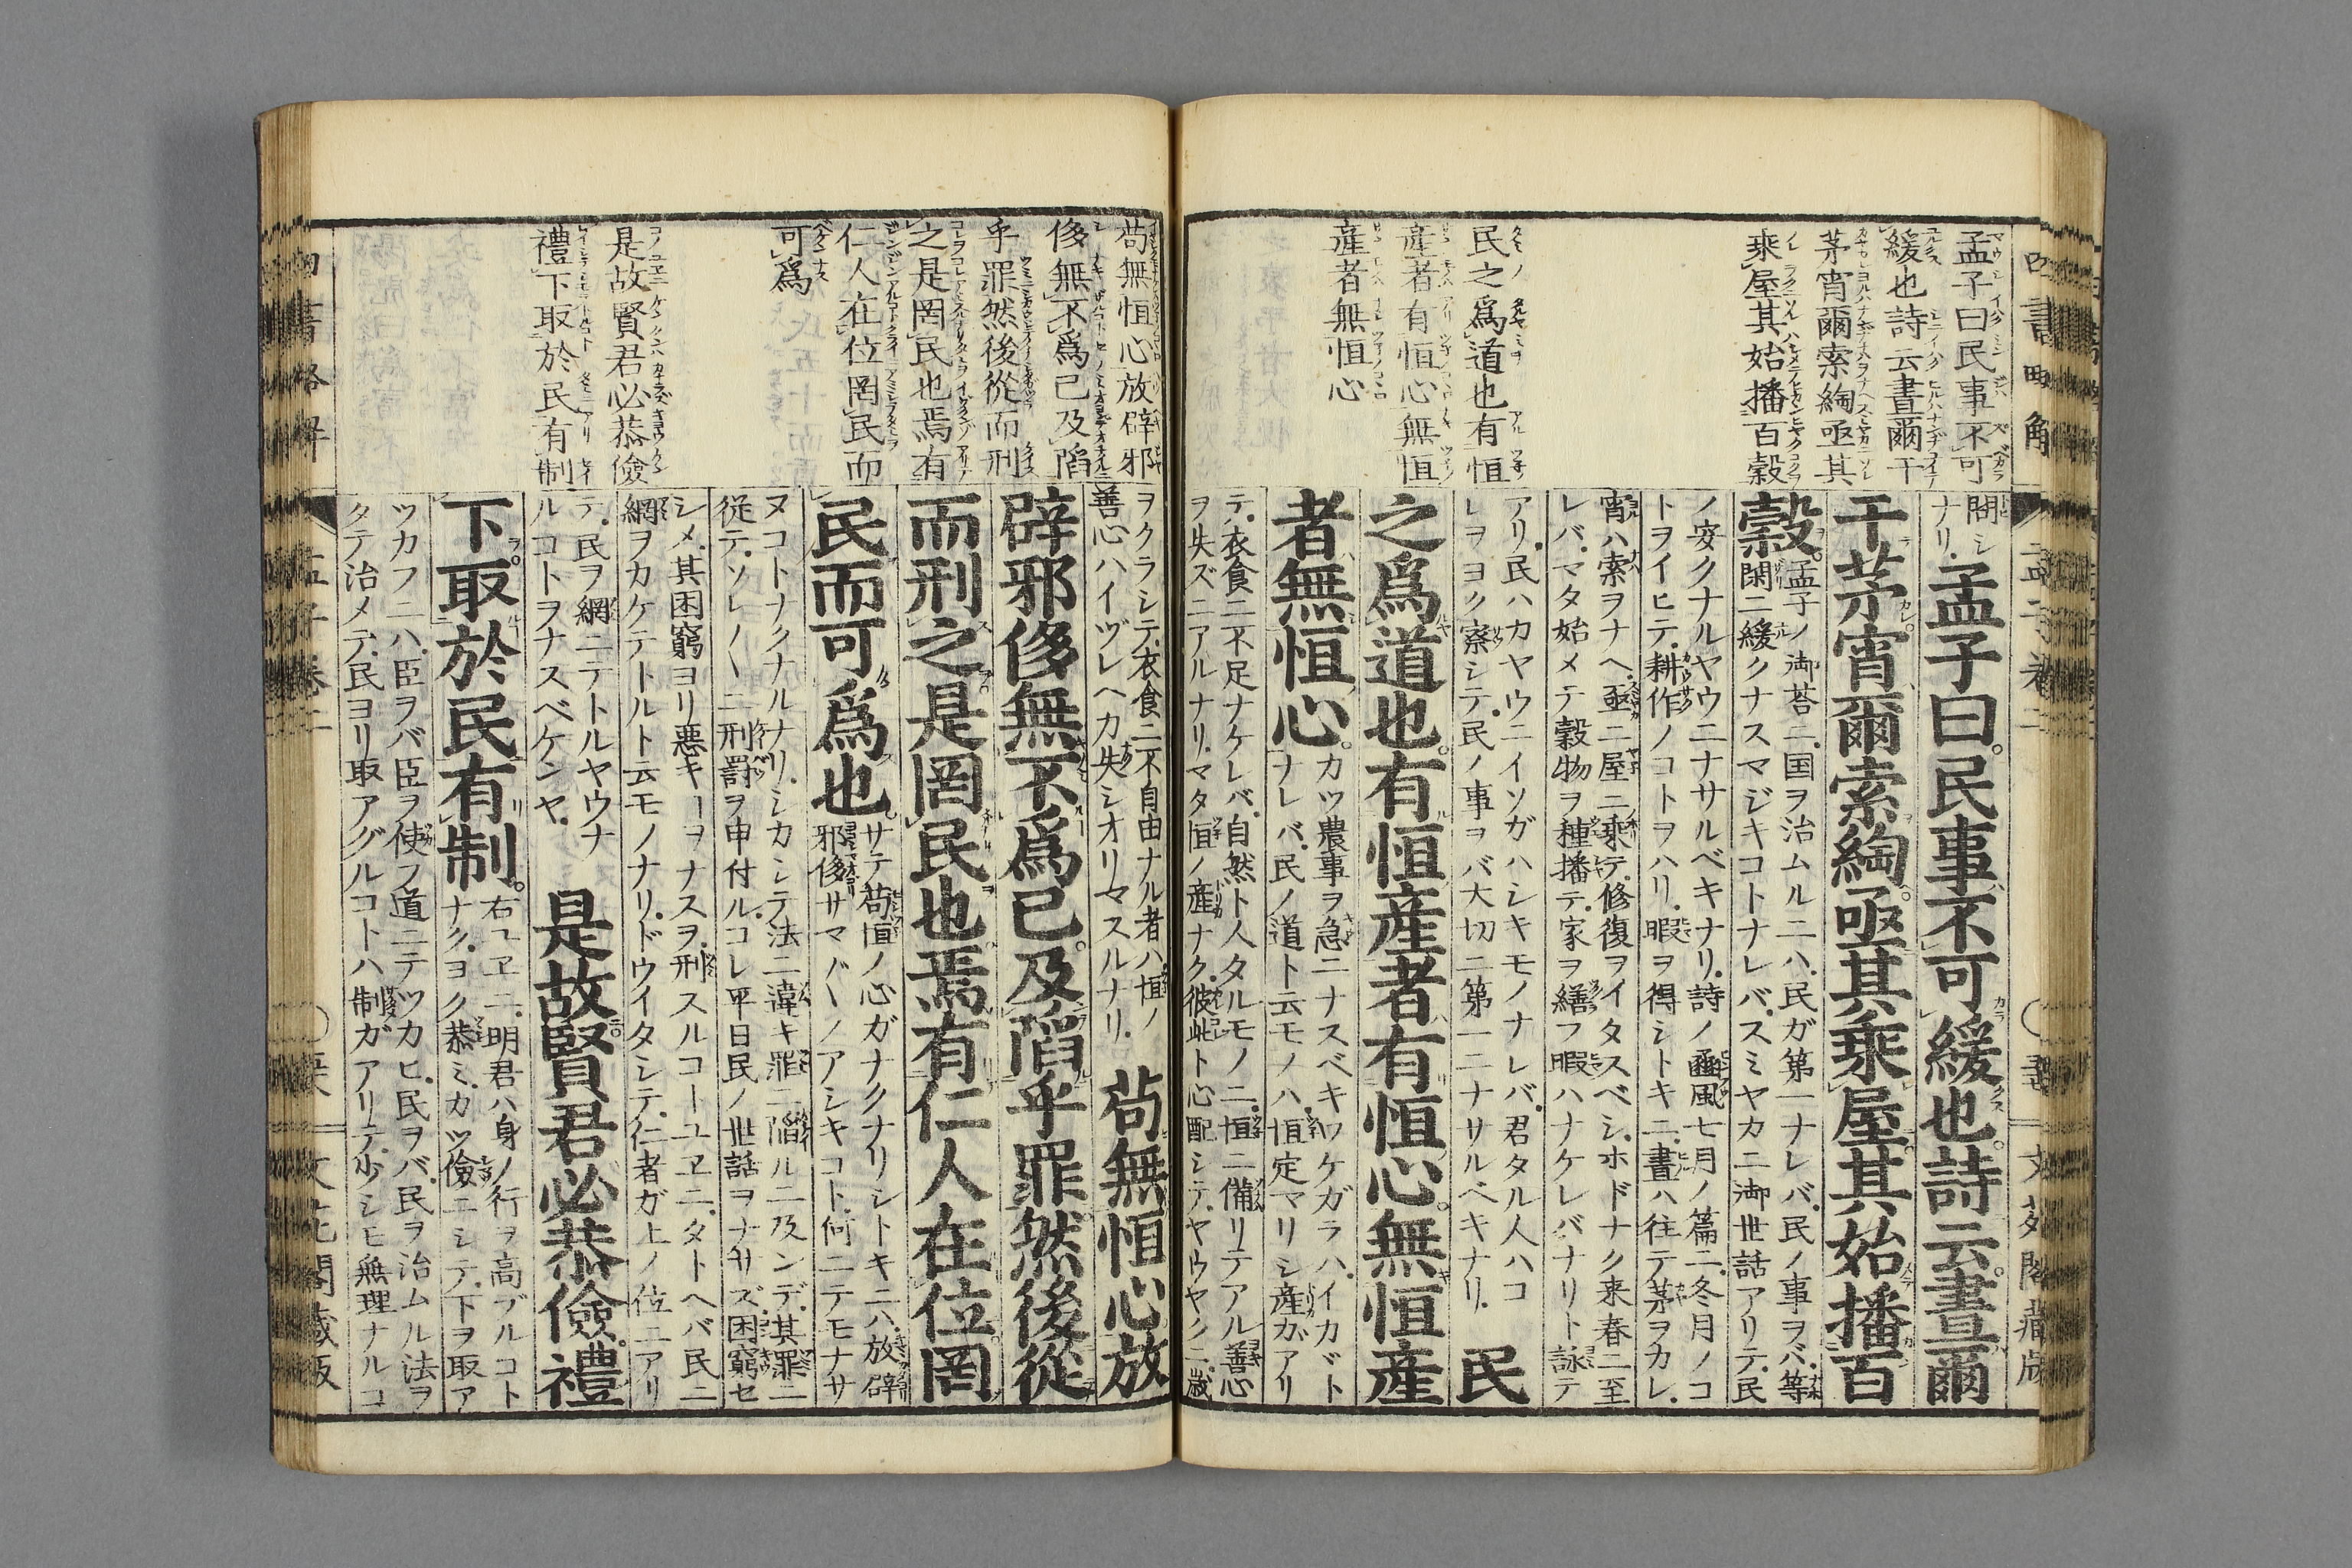 孟子曰民事不可
緩也詩云晝爾于
茅宵爾索綯亟其
乘屋其始播百穀
民之爲道也有恒
産者有恒心無恒
産者無恒心
問シ
ナリ
孟子曰民事不可緩也詩云晝爾
于茅宵爾索綯亟其乘屋其始播百
穀
孟子ノ御荅ニ国ヲ治ムルニハ民ガ第一ナレバ民ノ事ヲバ等
閑ニ緩クナスマジキコトナレバスミヤカニ御世話アリテ民
ノ安クナルヤウニナサルベキナリ詩ノ豳風七月ノ篇ニ冬月ノコ
トヲイヒテ耕作ノコトヲハリ暇ヲ得シトキニ晝ハ往テ茅ヲカレ
宵ハ索ヲナヘ亟ニ屋ニ乘テ修復ヲイタスベシホドナク来春ニ至
レバマタ始メテ穀物ヲ種播テ家ヲ繕フ暇ハナケレバナリト詠テ
アリ民ハカヤウニイソガハシキモノナレバ君タル人ハコ
レヲヨク察シテ民ノ事ヲバ大切ニ第一ニナサルベキナリ
民
之爲道也有恒産者有恒心無恒産
者無恒心
カツ農事ヲ急ニナスベキワケガラハイカヾト
ナレバ民ノ道ト云モノハ恒定マリシ産ガアリ
テ衣食ニ不足ナケレバ自然ト人タルモノニ恒ニ備リテアル善心
ヲ失ズニアルナリマタ恒ノ産ナク彼此ト心配シテヤウヤクニ歳
苟無恒心放辟邪
侈無不爲已及陷
乎罪然後從而刑
之是罔民也焉有
仁人在位罔民而
可爲
是故賢君必恭儉
禮下取於民有制
ヲクラシテ衣食ニ不自由ナル者ハ恒ノ
善心ハイヅレヘカ失シオリマスルナリ
苟無恒心放
辟邪侈無不爲已及陷乎罪然後從
而刑之是罔民也焉有仁人在位罔
民而可爲也
サテ苟恒ノ心ガナクナリシトキニハ放辟
邪侈サマ〲ノアシキコト何ニテモナサ
ヌコトナクナルナリシカシテ法ニ違キ罪ニ陷ルニ及ンデ其罪ニ
従テソレ〳〵ニ刑罰ヲ申付ルコレ平日民ノ世話ヲナサズ困窮セ
シメ其困窮ヨリ悪キヿヲナスヲ刑スルコトユヱニタトヘバ民ニ
網ヲカケテトルト云モノナリドウイタシテ仁者ガ上ノ位ニアリ
テ民ヲ網ニテトルヤウナ
ルコトヲナスベケンヤ
是故賢君必恭儉禮
下取於民有制
右ユヱニ明君ハ身ノ行ヲ高ブルコト
ナクヨク恭ミカツ儉ニシテ下ヲ取ア
ツカフニハ臣ヲバ臣ヲ使フ道ニテツカヒ民ヲバ民ヲ治ムル法ヲ
タテ治メテ民ヨリ取アグルコトハ制ガアリテ少シモ無理ナルコ
四書略解
孟子巻二
文花閣蔵版